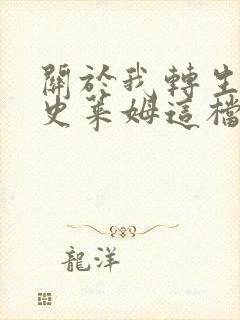 關於我轉生
史萊姆這檔
龍洋